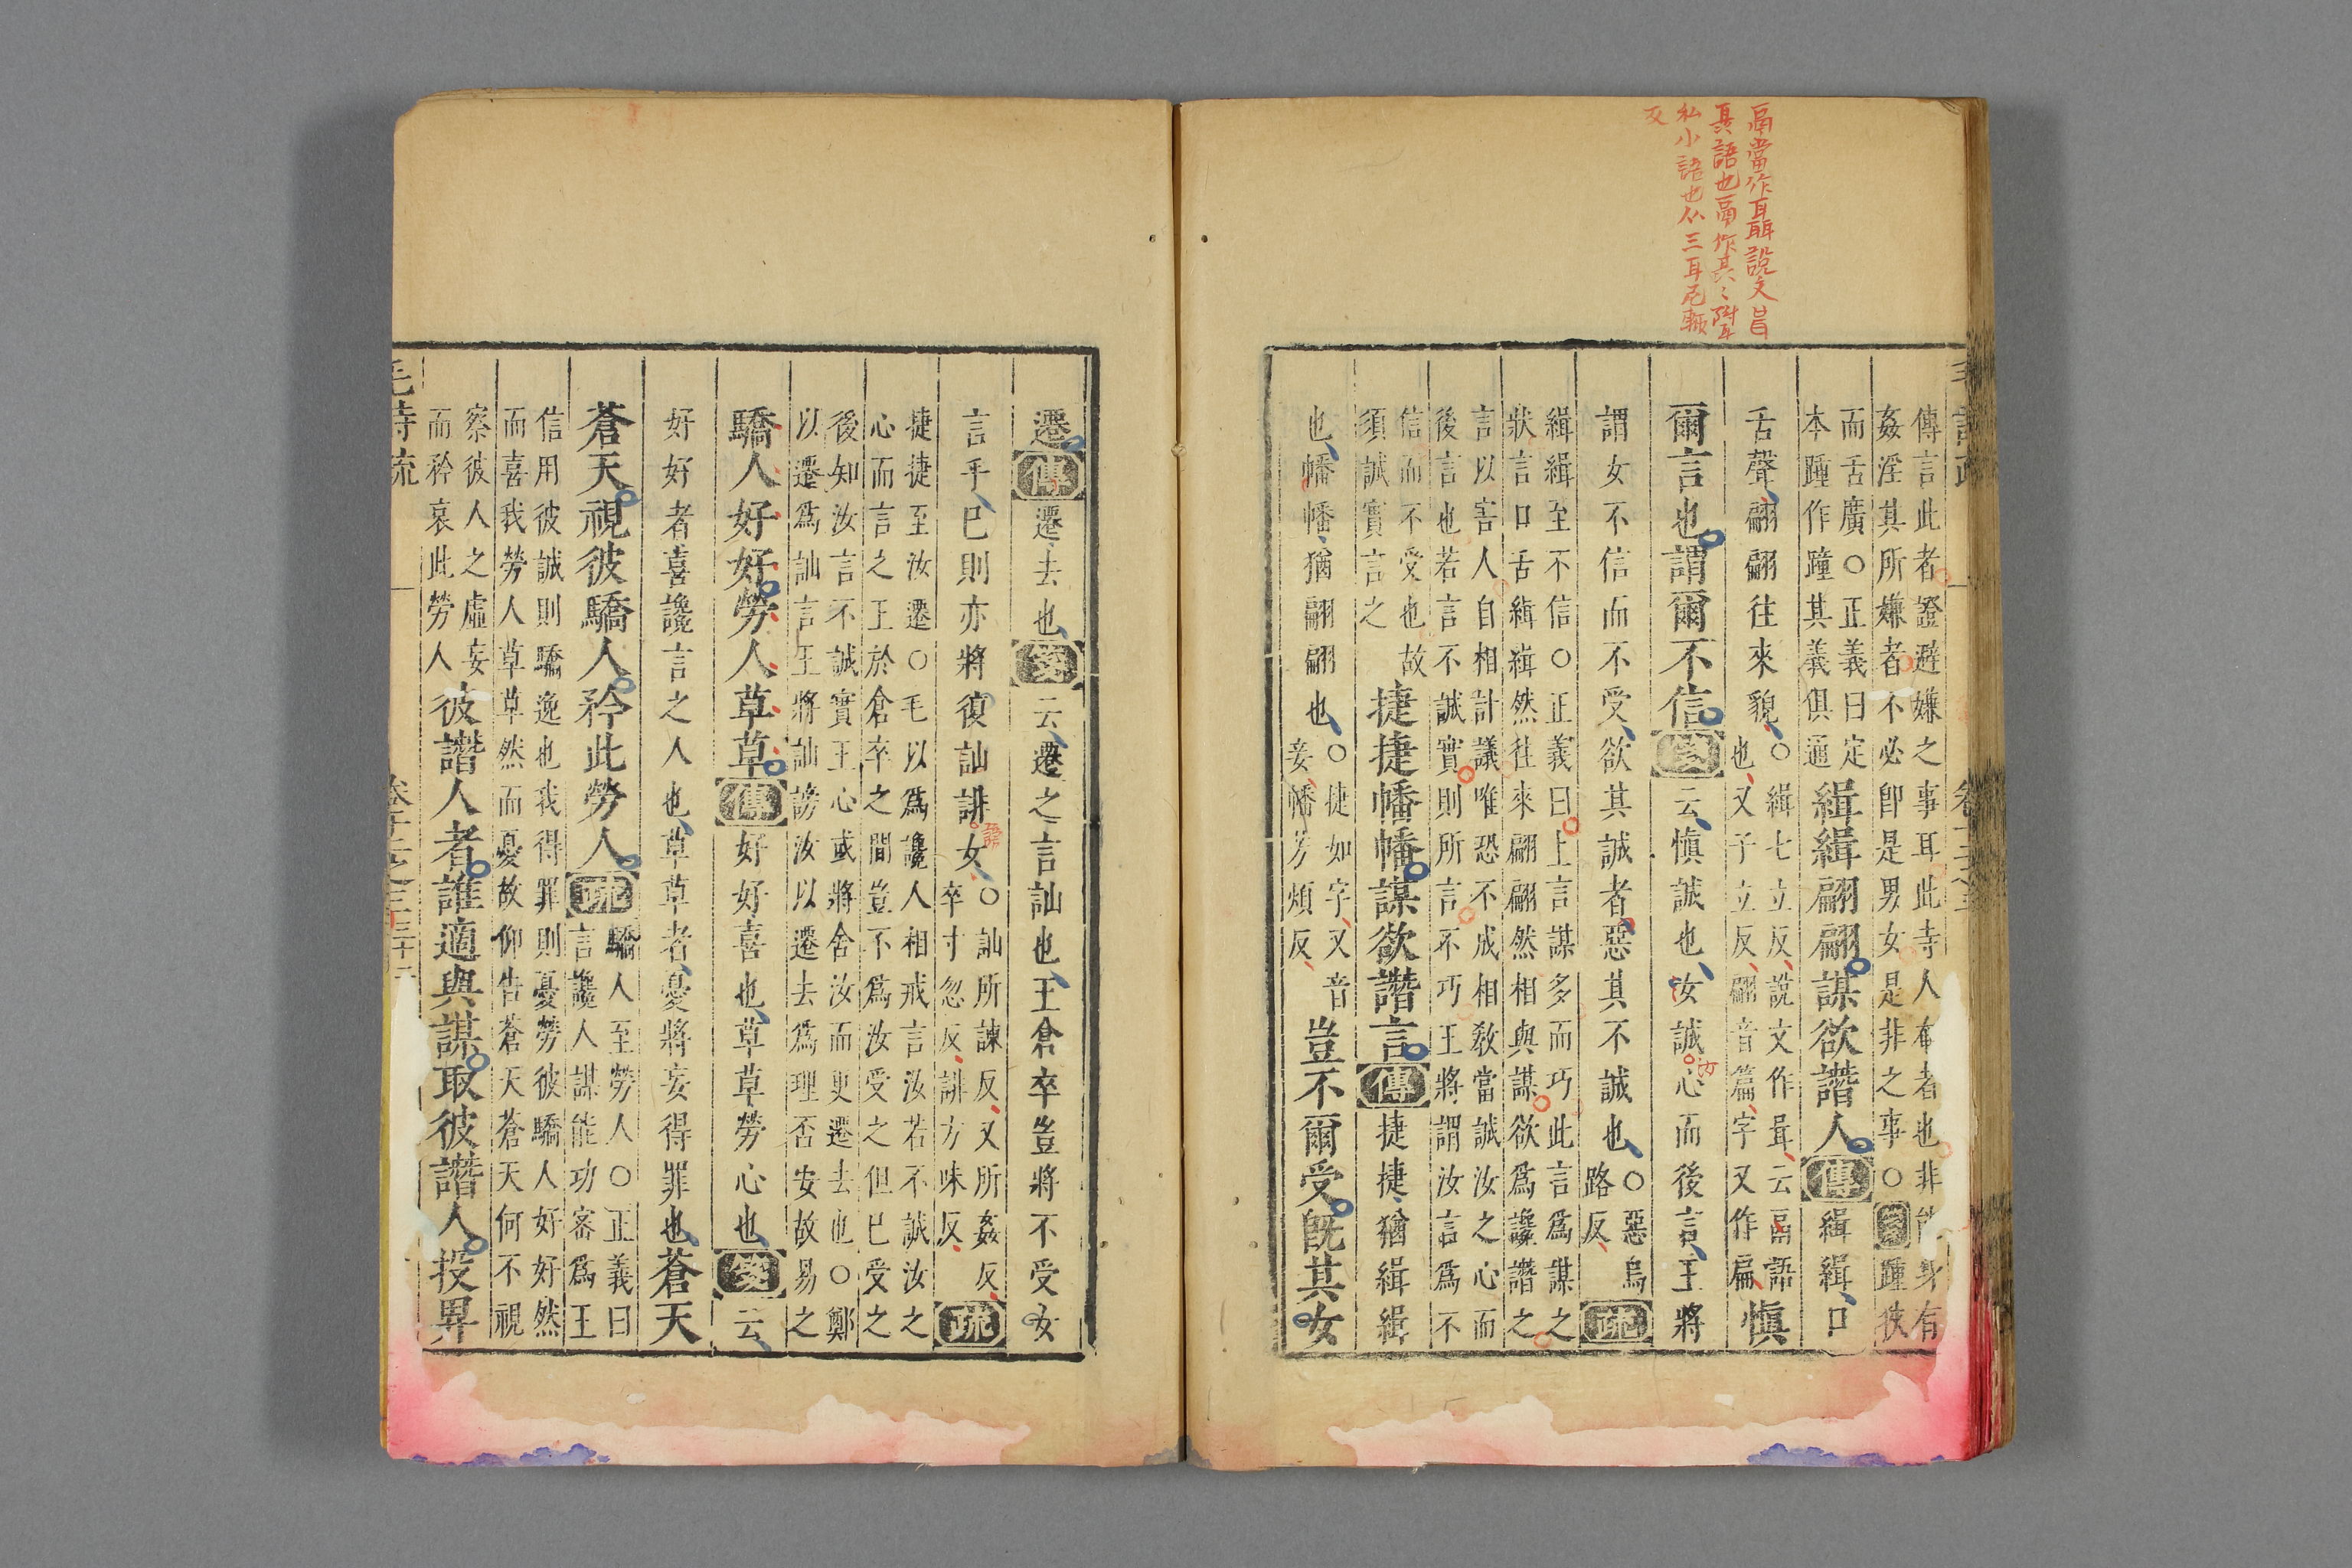 鬲當作聑聑說文咠
聶語也鬲作其〻附耳
私小語也从三耳尼輒
反
傳言此者證避嫌之事耳此寺人奄者也非能身有
姦淫其所嫌者不必卽是男女是非之事○踵狹
而舌廣○正義曰定
本踵作踵其義俱通
緝緝翩翩謀欲譖人傳緝緝口
舌聲翩翩往來貌○緝七立反說文作咠云鬲語
也又子立反翩音篇字又作扁
慎
爾言也謂爾不信箋云慎誠也女誠心而後言王將
汝
謂女不信而不受欲其誠者惡其不誠也○惡烏
路反
疏
緝緝至不信○正義曰上言謀多而巧此言爲謀之
狀言口舌緝緝然往來翩翩然相與謀欲爲讒譖之
言以害人自相計議唯恐不成相教當誠汝之心而
後言也若言不誠實則所言不巧王將謂汝言爲不
信而不受也故
須誠實言之
捷捷幡幡謀欲譖言傳捷捷猶緝緝
也幡幡猶翩翩也○捷如字又音
妾幡芳煩反
豈不爾受旣其女
遷傳遷去也箋云遷之言訕也王倉卒豈將不受女
言乎已則亦將復訕誹女○訕所諫反又所姦反
卒寸忽反誹方味反
疏
捷捷至汝遷○毛以爲讒人相戒言汝若不誠汝之
心而言之王於倉卒之間豈不爲汝受之但已受之
後知汝言不誠實王心或將舍汝而更遷去也○鄭
以遷爲訕言王將訕謗汝以遷去爲理否安故易之
驕人好好勞人草草傳好好喜也草草勞心也箋云
好好者喜讒言之人也草草者憂將妄得罪也蒼天
蒼天視彼驕人矜此勞人疏驕人至勞人○正義曰
言讒人謀能功密爲王
信用彼誠則驕逸也我得罪則憂勞彼驕人好好然
而喜我勞人草草然而憂故仰告蒼天蒼天何不視
察彼人之虛妄
而矜哀此勞人
彼譖人者誰適與謀取彼譖人投畀